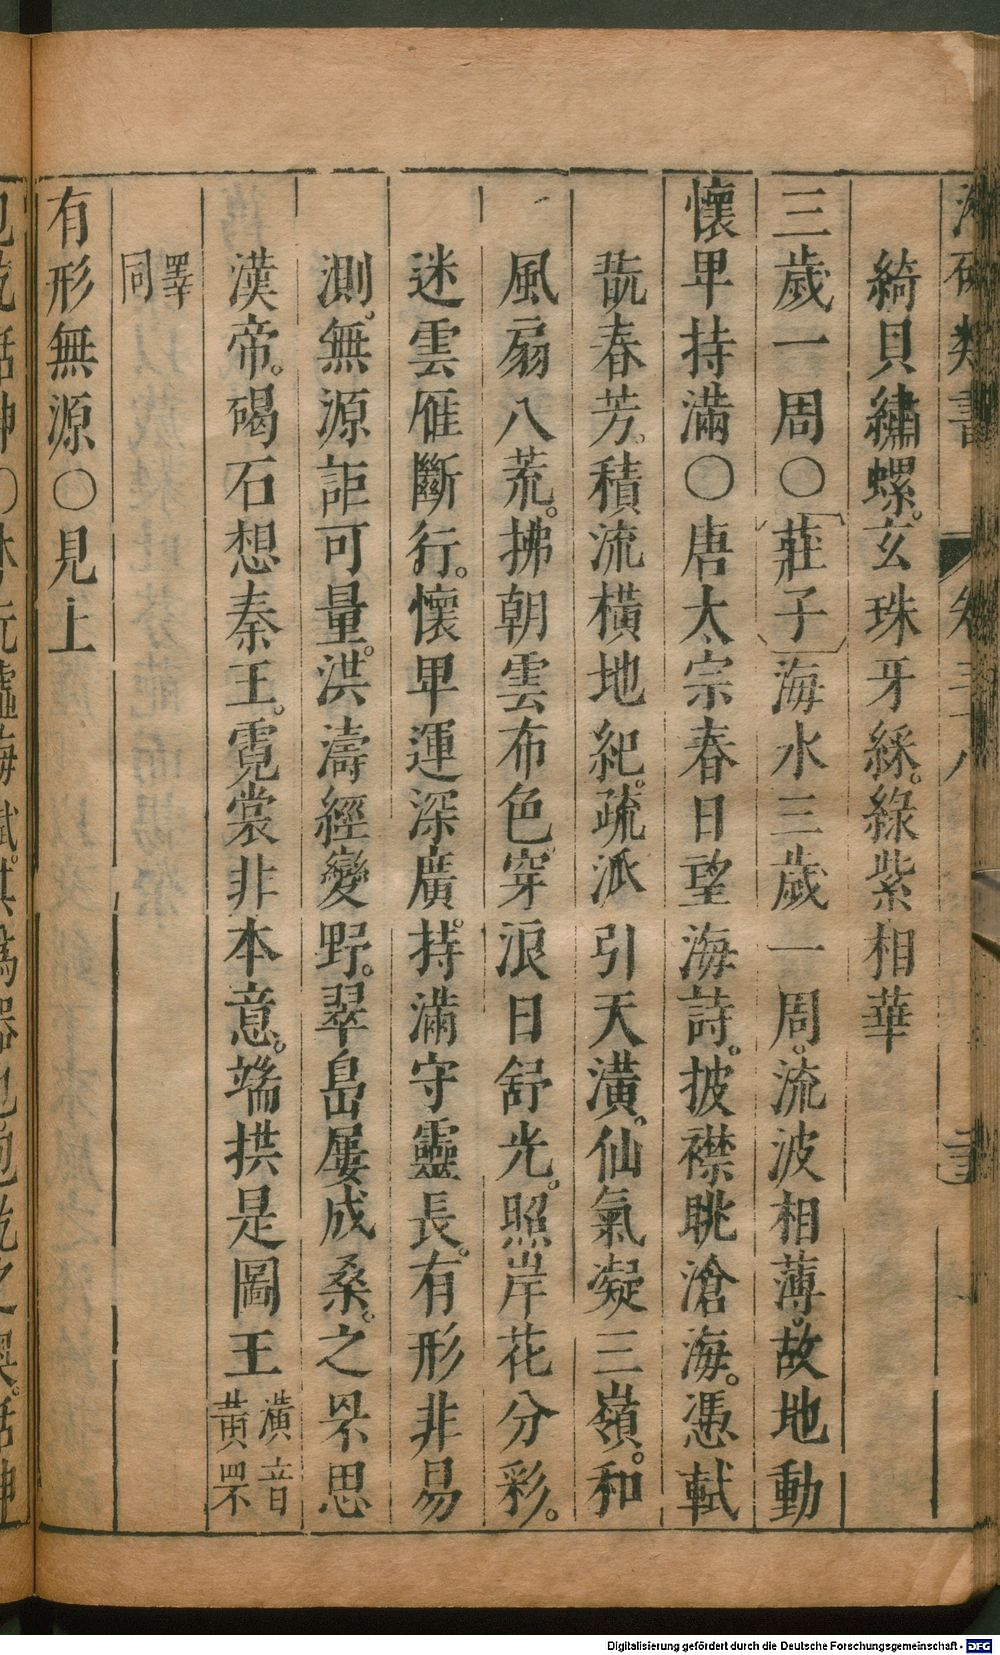 綺貝繡螺。玄珠牙綵。綠紫相華
三歲一周〇莊子海水三歲一周。流波相薄。故地動
懷卑持滿〇唐太宗春日望海詩。披襟眺滄海。憑軾
翫春芳。積流橫地紀。疏派引天潢。仙氣凝三嶺。和
風扇八荒。拂朝雲布色。穿浪日舒光。照岸花分彩。
迷雲雁斷行。懷卑運深廣。持滿守靈長。有形非易
測。無源詎可量。洪濤經變野。翠島屢成桑。之罘思
漢帝。碣石想秦王。霓裳非本意。端拱是圖王潢音黃罘
罿同
有形無源〇見上
Digitalisierung gefördert durch die Deutsche Forschungsgemeinschaft - DFG